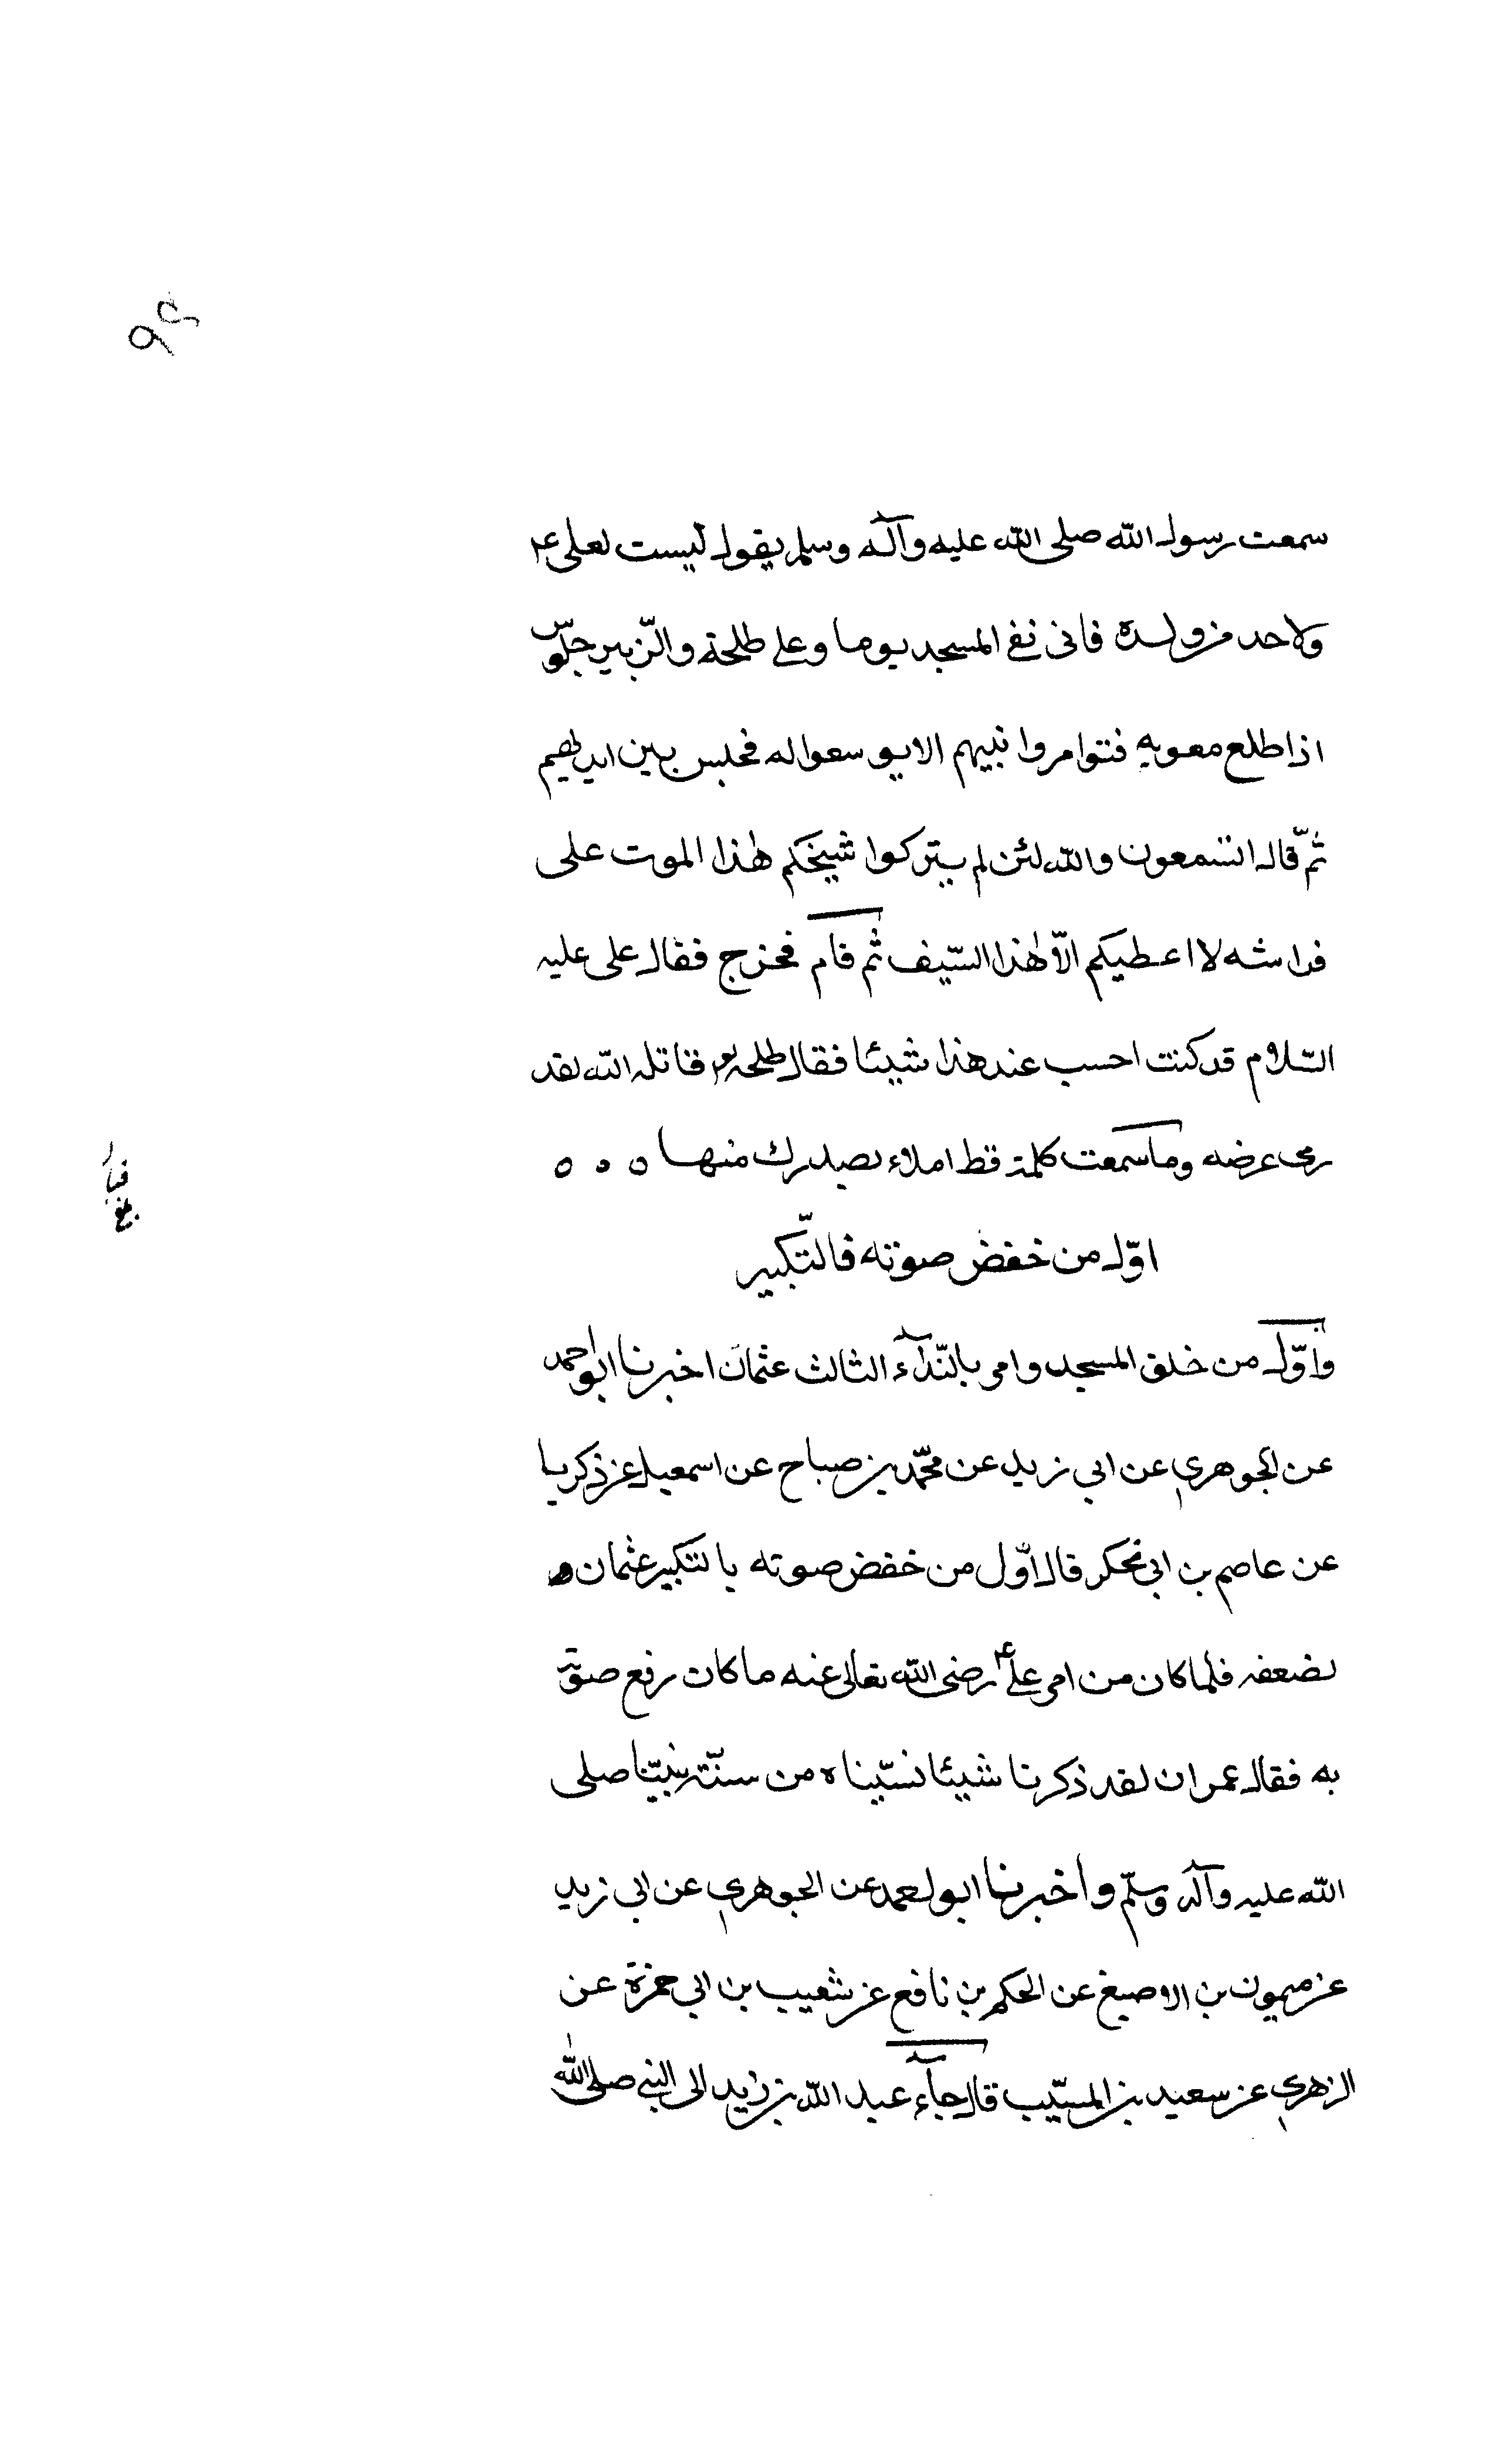 سمعت رسول الله صلى الله عليه وآله وسلم يقول ليست لعلى ع
ولاحد من ولده فانى نفى المسجد يوما وعلى طلحة والزّبير جلوس
اذا طلع معويه فتوامروا نبيهم الا يوسعوا له فجلس بين ايديهم
ثمّ قال اتسمعون والله لئن لم يتركوا شيخكم هذا الموت على
فراشه لا اعطيكم الاّ هذا السّيف ثم قام فخرج فقال على عليه
السّلام قد كنت احسب عند هذا شيئا فقال طلحه قاتله الله لقد
رمى عرضه وما سمعت كلمة قط املاء لصدرك منها ه ه ه
اوّل من خفض صوته فالتّكبير
واوّل من خلق المسجد وامر بالنّدآء الثالث عثمان اخبرنا ابو احمد
عن الجوهرى عن ابى زيد عن محمّد بن صباح عن اسمعيل عن ذكريا
عن عاصم بن ابى قال اوّل من خفض صوته بالتكبير عثمان
لضعفه فلما كان من امر على ع رضى الله تعالى عنه ما كان رفع صوته
به فقال عمران لقد ذكرنا شيئا نسّيناه من سنّة نبيّنا صلى
الله عليه وآله وسلّم واخبرنا ابو احمد عن الجوهرى عن ابى زيد
عن ميمون بن الاصبغ عن الحكم بن نافع عن شعيب بن ابى حمزة عن
الزهرى عن سعيد بن المسيّب قال جآء عبد الله بن زيد الى النبى صلى الله